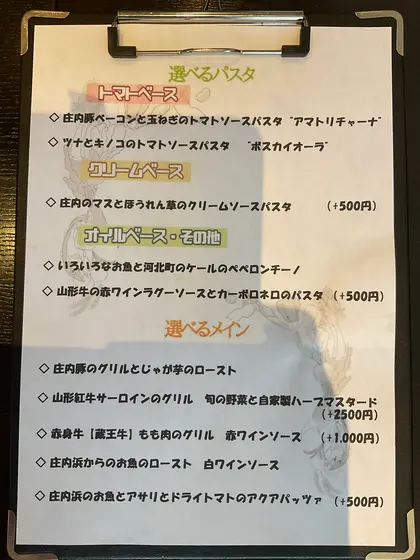 選べるパスタ
トマトベース
◇庄内豚ベーコンと玉ねぎのトマトソースパスタ “アマトリチャーナ”
◇ツナとキノコのトマトソースパスタ “ボスカイオーラ”
クリームベース
◇庄内のマスとほうれん草のクリームソースパスタ （+500円）
オイルベース・その他
◇いろいろなお魚と河北町のケールのペペロンチーノ
◇山形牛の赤ワインラグーソースとカーボロネロのパスタ （+500円）
選べるメイン
◇庄内豚のグリルとじゃが芋のロースト
◇山形紅牛サーロインのグリル 旬の野菜と自家製ハーブマスタード
（+2500円）
◇赤身牛【蔵王牛】もも肉のグリル 赤ワインソース （+1.000円）
◇庄内浜からのお魚のロースト 白ワインソース
◇庄内浜のお魚とアサリとドライトマトのアクアパッツァ （+500円）